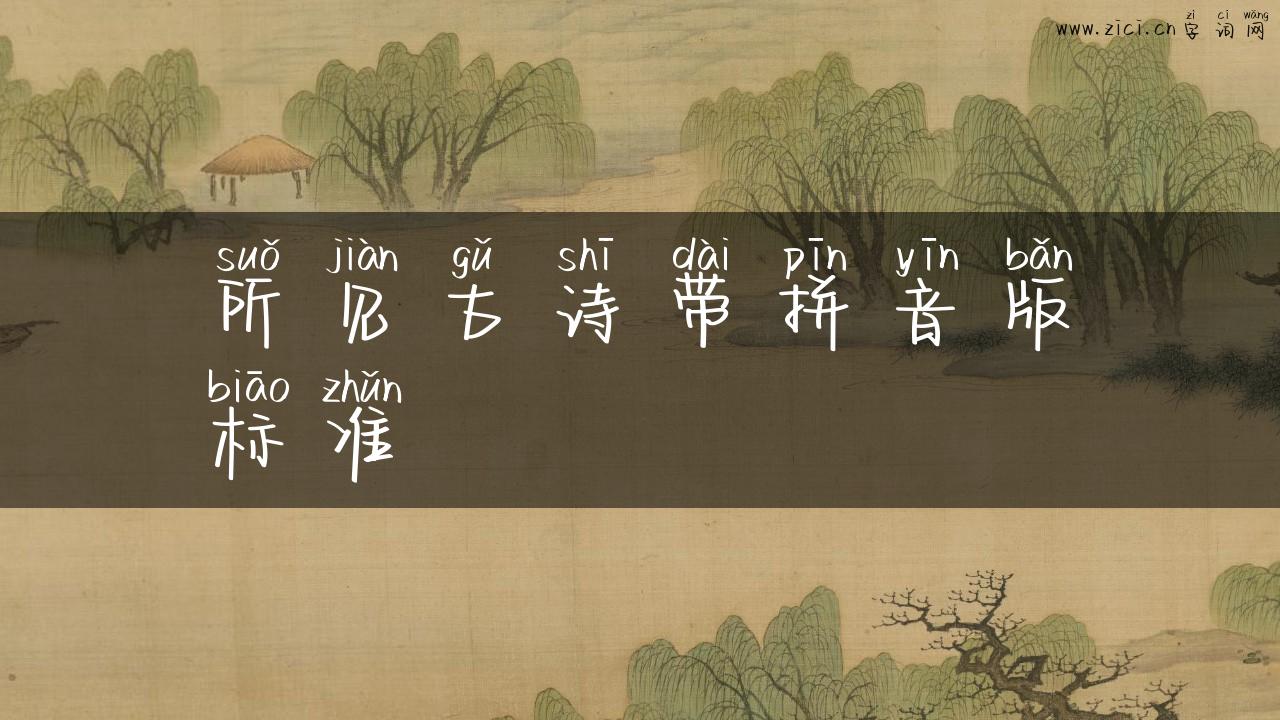 zì cí wǎng
www.zici.cn 字 词 网
suǒ jiàn gǔ shī dài pīn yīn bǎn
所 见 古 诗 带 拼 音 版
biāo zhǔn
标 准